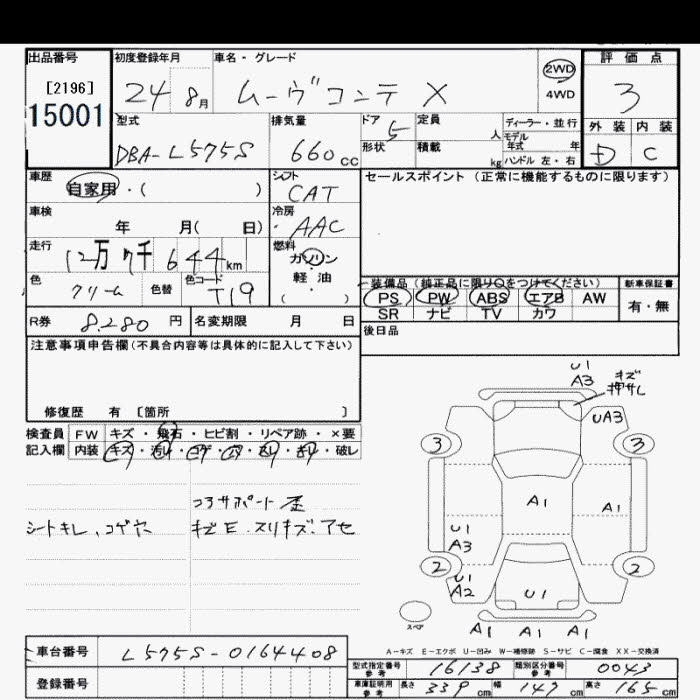 出品番号 初度登録年月 車名・グレード 2WD 4WD 評価点
[2196]
15001
24 8月 ムーヴコンテ X 3
型式 排気量 ドア 5 定員 人 ディーラー・並行 外装 内装
DBA-L575S 660cc 形状 積載 kg モデル年式 年 ハンドル 左・右 D C
車歴 自家用・( ) シフト CAT セールスポイント (正常に機能するものに限ります)
車検 年 月( 日) 冷房 AAC
走行 12万7千644km 燃料 ガソリン
色 クリーム 色替 色コード T19 軽油 ( )
装備品(純正品に限り○をつけてください) 新車保証書
PS PW ABS エアB AW 有・無
SR ナビ TV カワ
R券 8280円 名変期限 月 日 後日品
注意事項申告欄(不具合内容等は具体的に記入して下さい)
修復歴 有 [箇所 ]
検査員 FW キズ・飛石・ヒビ割・リペア跡・×要
記入欄 内装 キズ・汚レ・コゲ・穴・スレ・キレ・破レ
コアサポート歪
シートキレ、コゲ穴 キズE.スリキズ.アセ
U1
A3 キズ
押サレ
UA3
3 3
A1 A1
U1
A3
2 2
U1
A2 U1
スペア
A1 A1 A1
A-キズ E-エクボ U-凹み W-補修跡 S-サビ C-腐食 XX-交換済
車台番号 L575S-0164408
型式指定番号 参考 16138 類別区分番号 参考 0043
登録番号 車庫証明用 参考 長さ 339cm 幅 147cm 高さ 165cm